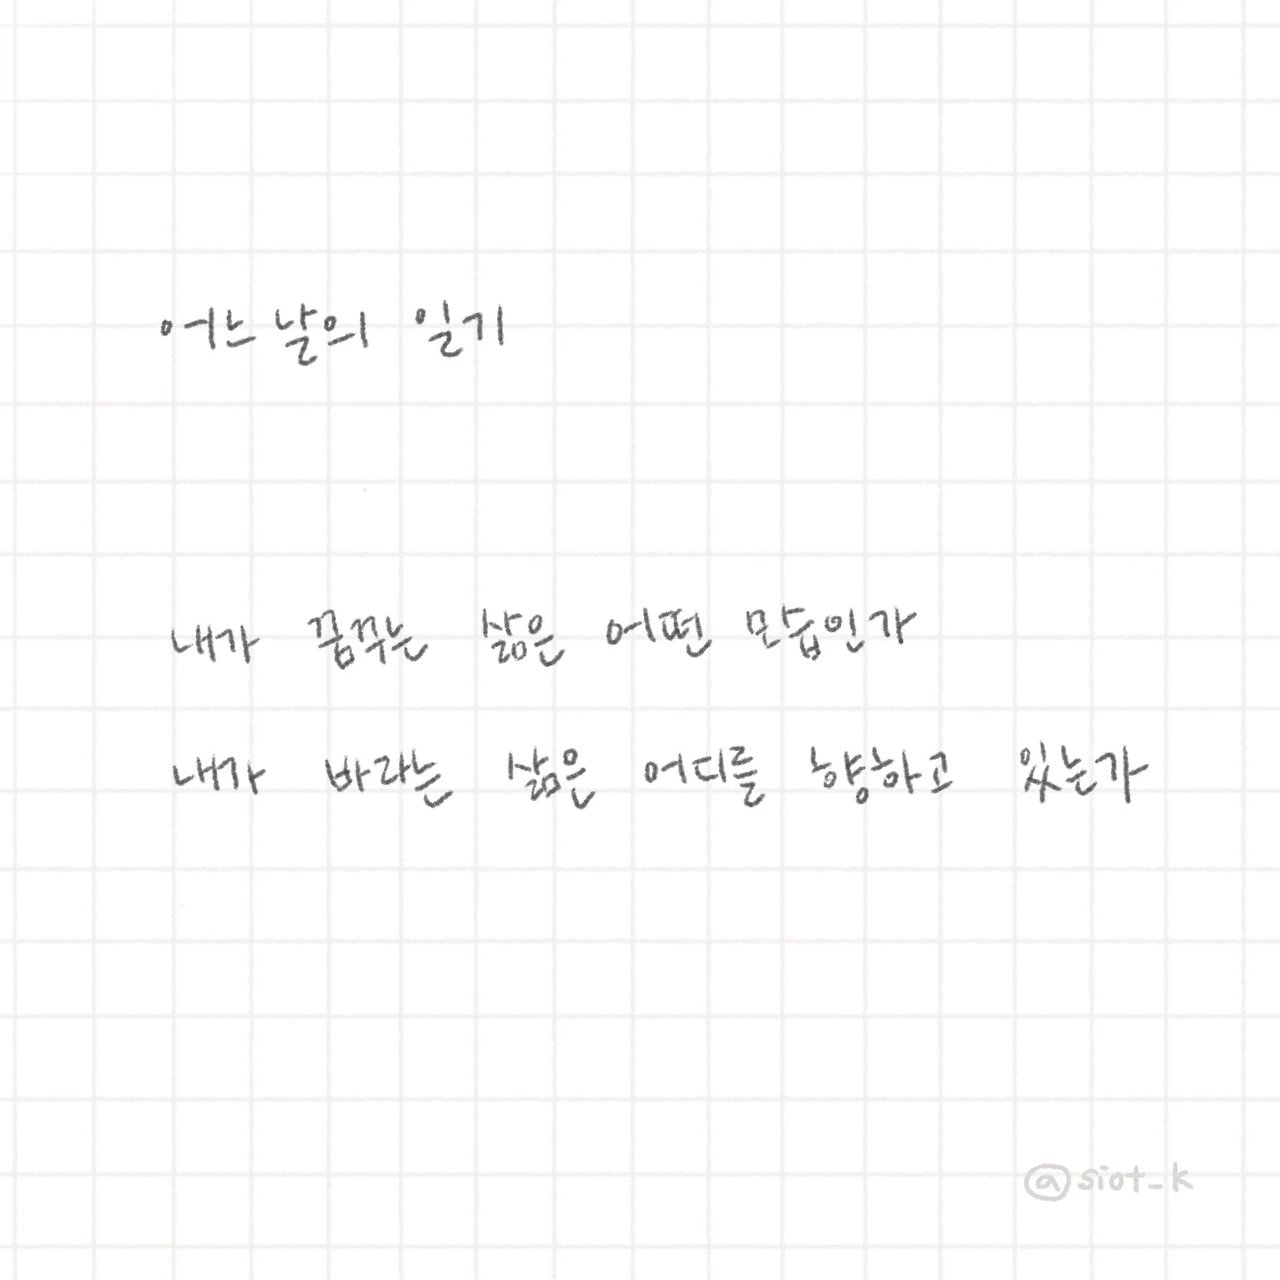 어느 날의 일기
내가 꿈꾸는 삶은 어떤 모습인가
내가 바라는 삶은 어디를 향하고 있는가
@siot_k